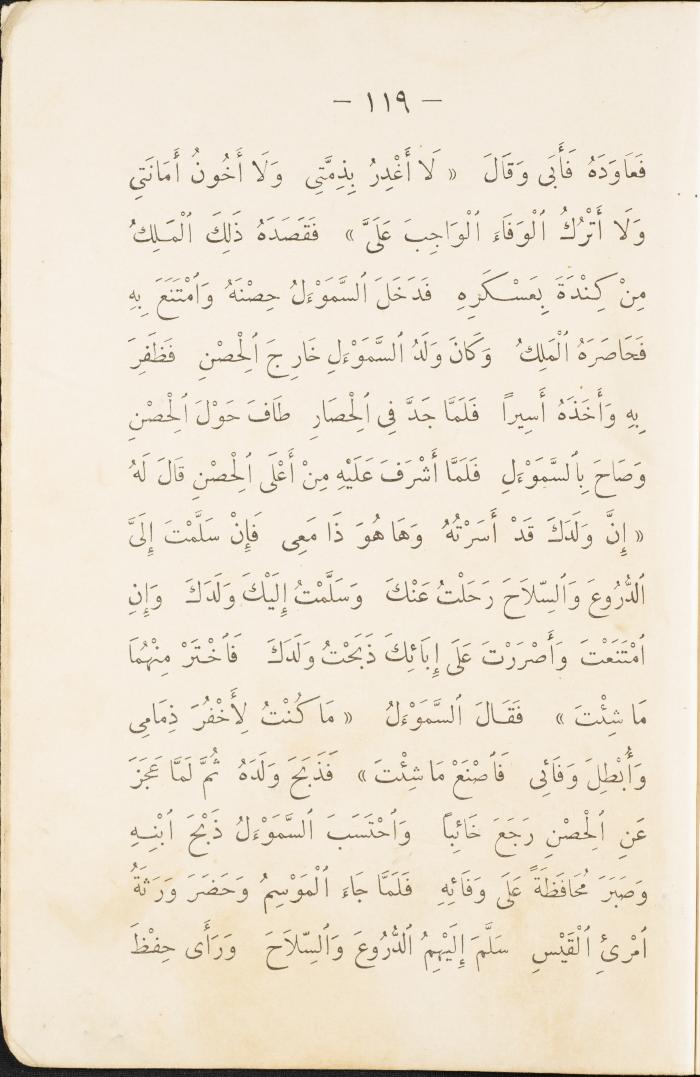 — ١١٩ —
فَعَاوَدَهُ فَأَبَى وَقَالَ « لَا أَغْدِرُ بِذِمَّتِي وَلَا أَخُونُ أَمَانَتِي
وَلَا أَتْرُكُ ٱلْوَفَاءَ ٱلْوَاجِبَ عَلَيَّ » فَقَصَدَهُ ذَلِكَ ٱلْمَلِكُ
مِنْ كِنْدَةَ بِعَسْكَرِهِ فَدَخَلَ ٱلسَّمَوْءَلُ حِصْنَهُ وَٱمْتَنَعَ بِهِ
فَحَاصَرَهُ ٱلْمَلِكُ وَكَانَ وَلَدُ ٱلسَّمَوْءَلِ خَارِجَ ٱلْحِصْنِ فَظَفِرَ
بِهِ وَأَخَذَهُ أَسِيراً فَلَمَّا جَدَّ فِي ٱلْحِصَارِ طَافَ حَوْلَ ٱلْحِصْنِ
وَصَاحَ بِٱلسَّمَوْءَلِ فَلَمَّا أَشْرَفَ عَلَيْهِ مِنْ أَعْلَى ٱلْحِصْنِ قَالَ لَهُ
« إِنَّ وَلَدَكَ قَدْ أَسَرْتُهُ وَهَا هُوَ ذَا مَعِي فَإِنْ سَلَّمْتَ إِلَيَّ
ٱلدُّرُوعَ وَٱلسِّلَاحَ رَحَلْتُ عَنْكَ وَسَلَّمْتُ إِلَيْكَ وَلَدَكَ وَإِنِ
ٱمْتَنَعْتَ وَأَصْرَرْتَ عَلَى إِبَائِكَ ذَبَحْتُ وَلَدَكَ فَٱخْتَرْ مِنْهُمَا
مَا شِئْتَ » فَقَالَ ٱلسَّمَوْءَلُ « مَا كُنْتُ لِأَخْفُرَ ذِمَامِي
وَأُبْطِلَ وَفَائِي فَٱصْنَعْ مَا شِئْتَ » فَذَبَحَ وَلَدَهُ ثُمَّ لَمَّا عَجَزَ
عَنِ ٱلْحِصْنِ رَجَعَ خَائِباً وَٱحْتَسَبَ ٱلسَّمَوْءَلُ ذَبْحَ ٱبْنِهِ
وَصَبَرَ مُحَافَظَةً عَلَى وَفَائِهِ فَلَمَّا جَاءَ ٱلْمَوْسِمُ وَحَضَرَ وَرَثَةُ
ٱمْرِئِ ٱلْقَيْسِ سَلَّمَ إِلَيْهِمُ ٱلدُّرُوعَ وَٱلسِّلَاحَ وَرَأَى حِفْظَ